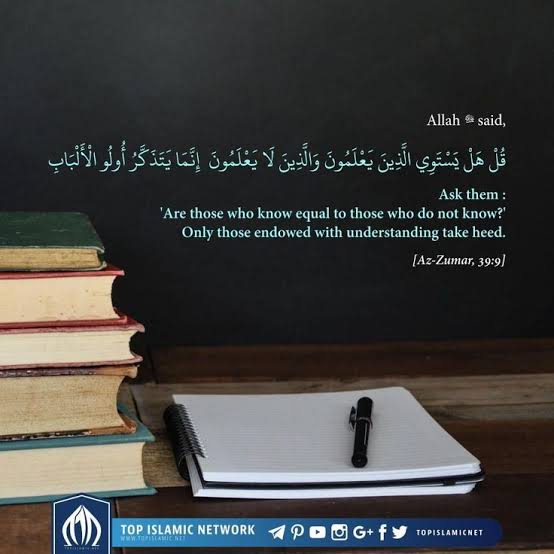 Allah ﷻ said,
قُلْ هَلْ يَسْتَوِي الَّذِينَ يَعْلَمُونَ وَالَّذِينَ لَا يَعْلَمُونَ إِنَّمَا يَتَذَكَّرُ أُولُو الْأَلْبَابِ
Ask them :
'Are those who know equal to those who do not know?'
Only those endowed with understanding take heed.
[Az-Zumar, 39:9]
TOP ISLAMIC NETWORK
WWW.TOPISLAMIC.NET
TOPISLAMIC.NET
TOPISLAMICNET